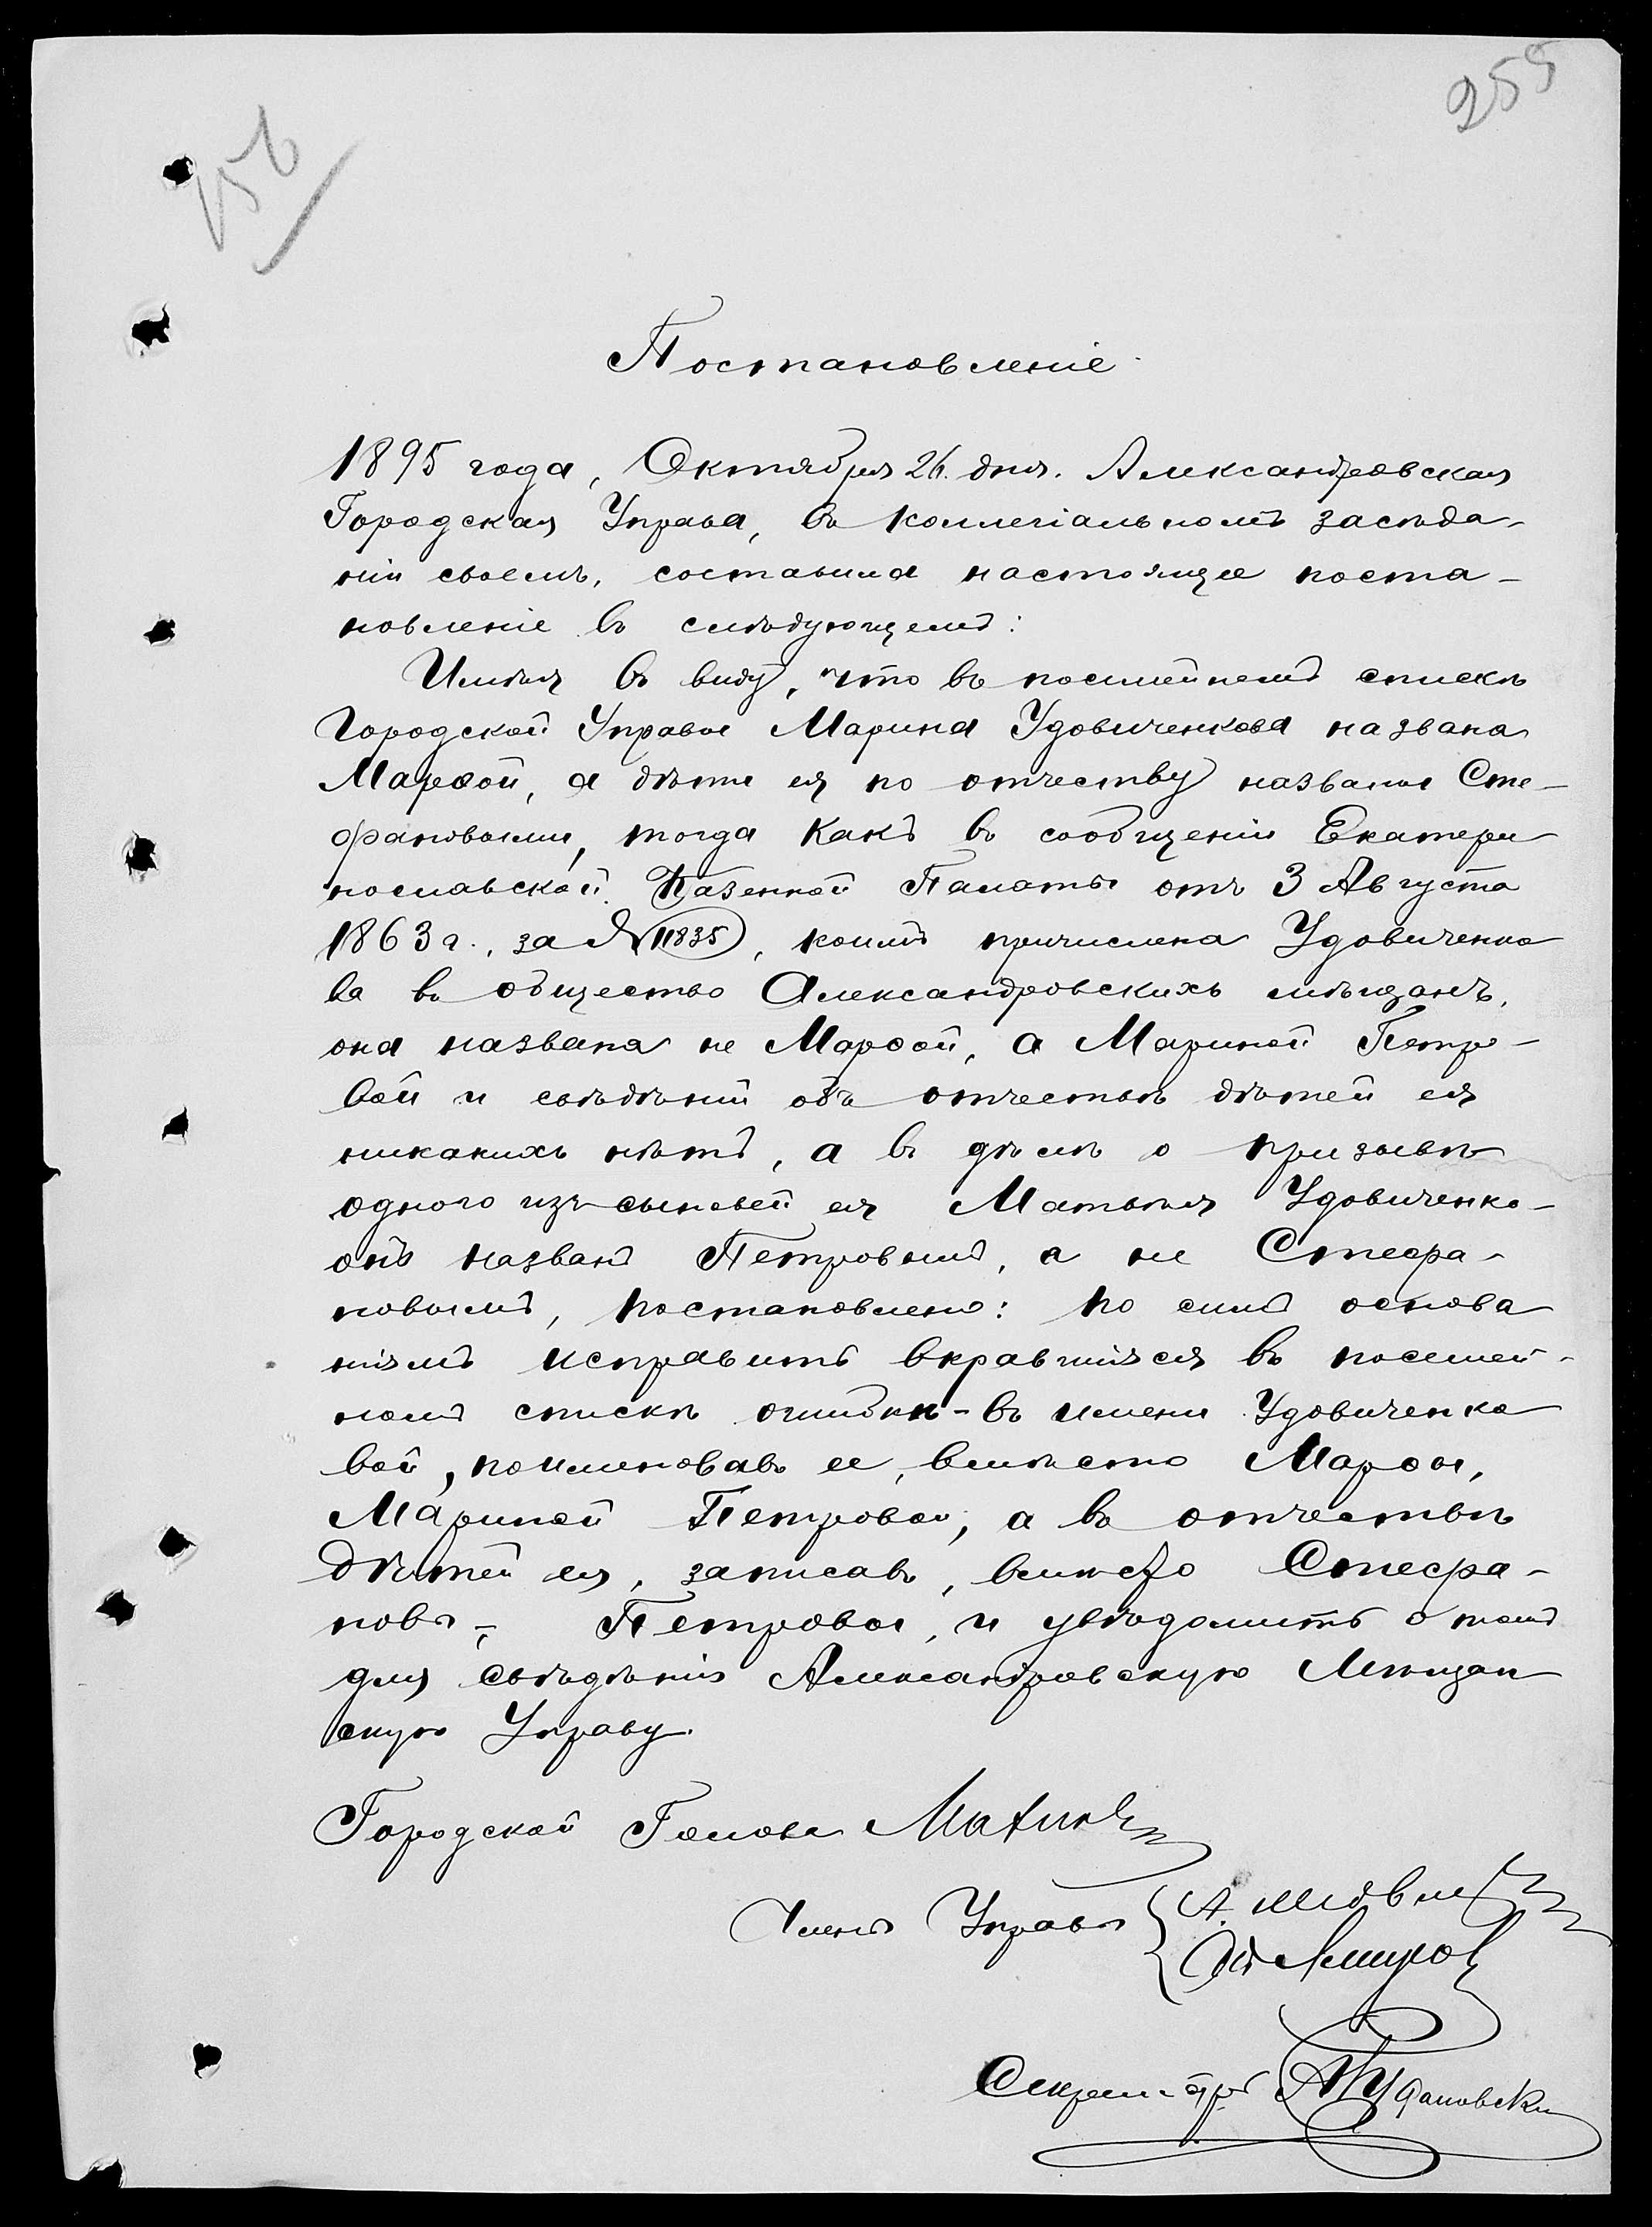 255
256
Постановленіе
1895 года, Октября 26 дня. Александровская
Городская Управа, въ коллегіальномъ засѣда-
ніи своемъ, составила настоящее поста-
новленіе въ слѣдующемъ:
Имѣя въ виду, что въ посемейномъ спискѣ
Городской Управы Марина Удовиченкова названа
Марѳой, а дѣти ея по отчеству названы Сте-
фановыми, тогда какъ въ сообщеніи Екатери
нославской Казенной Палаты отъ 3 Августа
1863 г., за № 11835, коимъ причислена Удовиченко
ва въ общество Александровскихъ мѣщанъ,
она названа не Марѳой, а Мариной Петро-
вой и свѣдѣній объ отчествѣ дѣтей ея
никакихъ нѣтъ, а въ дѣлѣ о призывѣ
одного изъ сыновей ея Матвѣя Удовиченко-
онъ названъ Петровымъ, а не Стефа-
новымъ, постановлено: по симъ основа
ніямъ исправить вкравшіяся въ посемей-
номъ спискѣ ошибки - въ имени Удовиченко
вой, поименовавъ ее, вмѣсто Марѳы,
Мариной Петровой, а въ отчествѣ
дѣтей ея, записавъ, вмѣсто Стефа-
новы - Петровы, и увѣдомить о томъ
для свѣдѣнія Александровскую Мѣщан
скую Управу.
Городской Голова
Члены Управы
А.
Секретарь